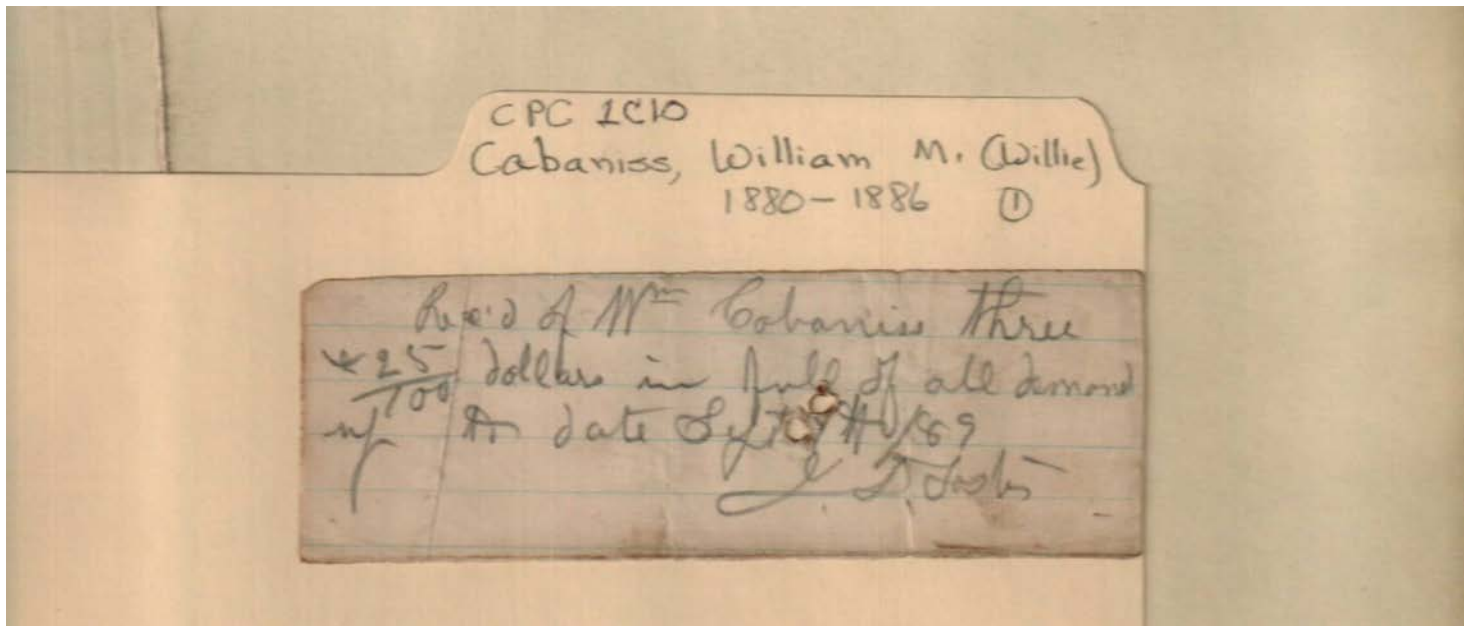 CPC 1C10
Cabaniss, William M. (Willie)
1880-1886 ①
Rec'd of Wm Cabaniss three
& 25/100 dollars in full of all demand
up to date Sept /89
J D